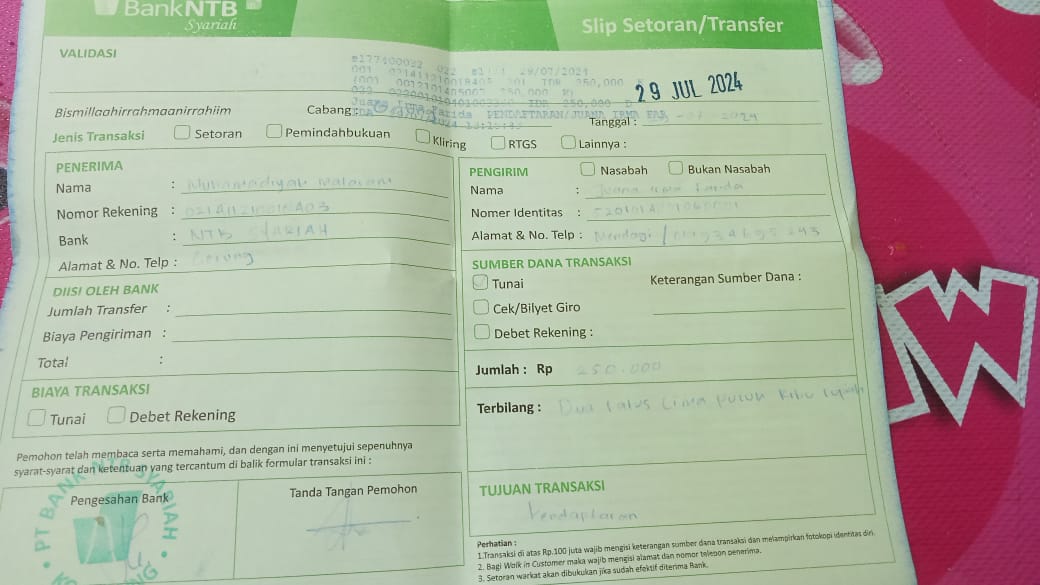 BankNTB
Syariah
Slip Setoran/Transfer
VALIDASI
29/07/2024
250,000
250,000
IDR 250,000
29 JUL 2024
Bismillaahirrahmaanirrahiim
Cabang :
PENDAFTARAN/JUANA IRMA FAR
Tanggal : -07-2024
Jenis Transaksi Setoran Pemindahbukuan Kliring RTGS Lainnya :
PENERIMA
Nama : Muhamadiyah Mataram
Nomor Rekening :
Bank : NTB SYARIAH
Alamat & No. Telp : Gerung
DIISI OLEH BANK
Jumlah Transfer :
Biaya Pengiriman :
Total :
BIAYA TRANSAKSI
Tunai Debet Rekening
Pemohon telah membaca serta memahami, dan dengan ini menyetujui sepenuhnya
syarat-syarat dan ketentuan yang tercantum di balik formular transaksi ini :
Pengesahan Bank
Tanda Tangan Pemohon
PT BANK NTB SYARIAH
PENGIRIM Nasabah Bukan Nasabah
Nama : Juana Irma Farida
Nomer Identitas :
Alamat & No. Telp :
SUMBER DANA TRANSAKSI
Tunai
Keterangan Sumber Dana :
Cek/Bilyet Giro
Debet Rekening :
Jumlah : Rp 250.000
Terbilang : Dua ratus Lima puluh Ribu rupiah
TUJUAN TRANSAKSI
Pendaptaran
Perhatian :
1.Transaksi di atas Rp.100 juta wajib mengisi keterangan sumber dana transaksi dan melampirkan fotokopi identitas diri.
2. Bagi Walk in Customer maka wajib mengisi alamat dan nomor telepon penerima.
3. Setoran warkat akan dibukukan jika sudah efektif diterima Bank.
W